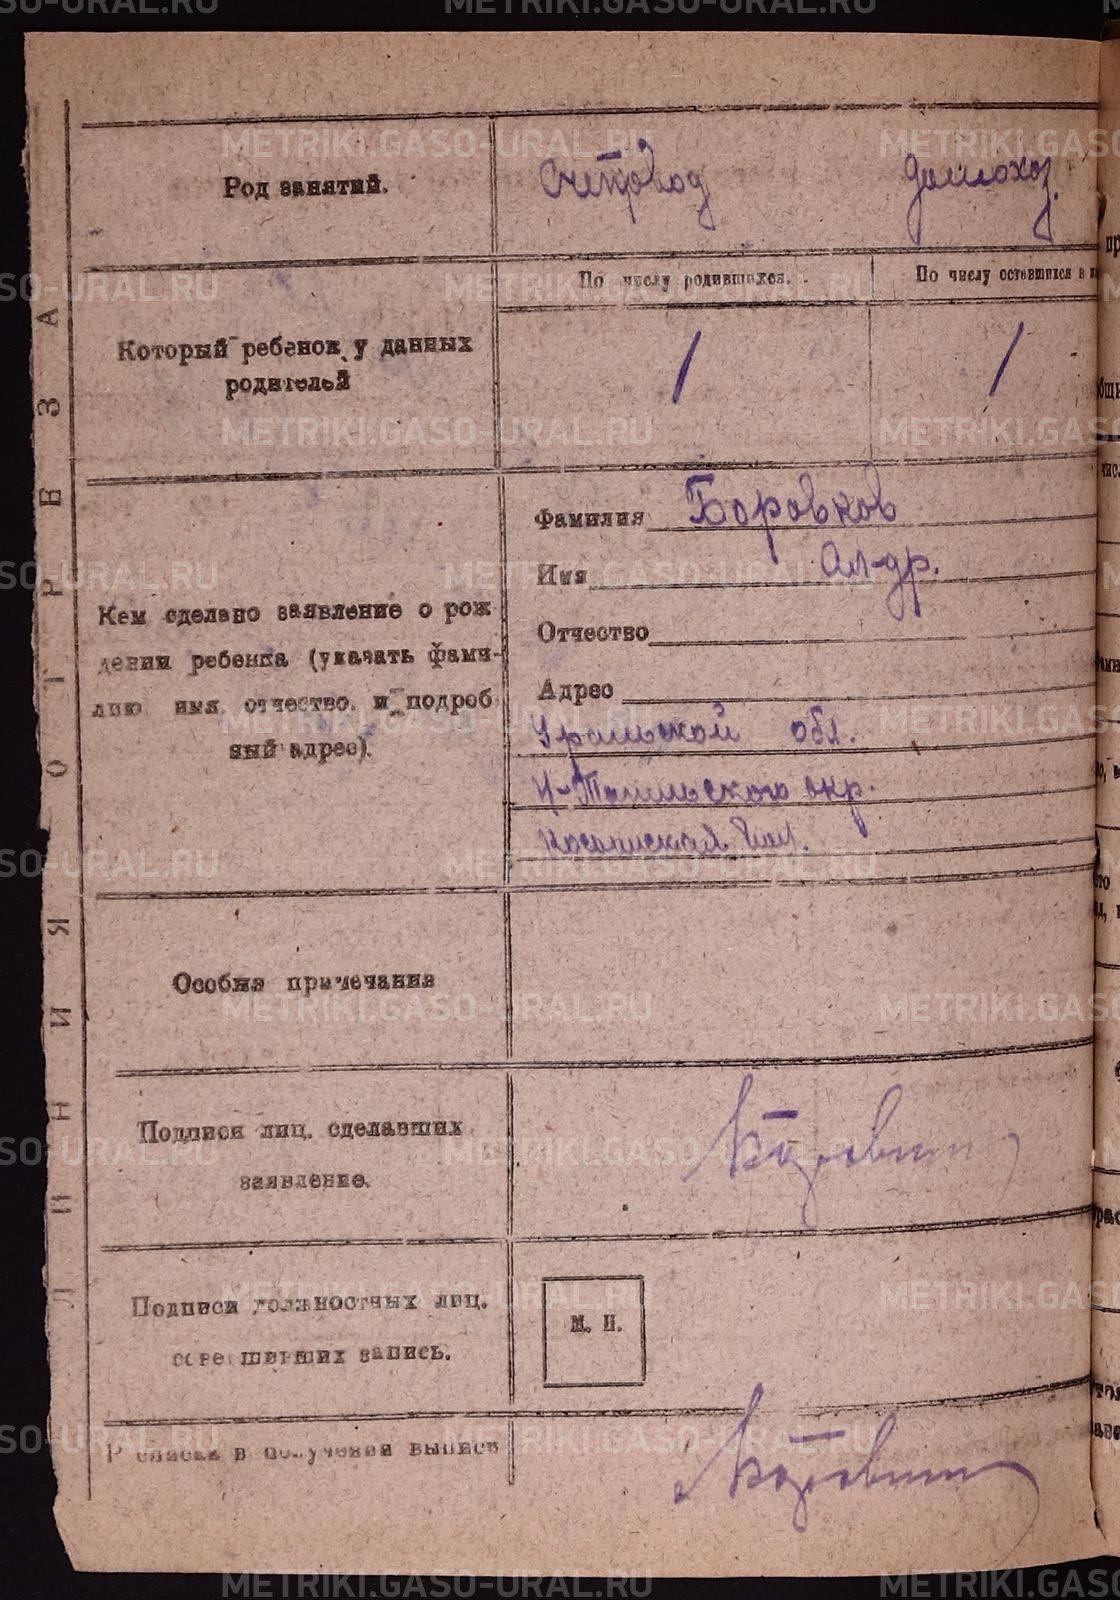 METRIKI.GASO-URAL.RU
Род занятий.
Счетовод
домохоз.
Который ребенок у данных
родителей
По числу родившихся.
По числу оставшихся в
1
1
Кем сделано заявление о рож
дении ребенка (указать фами-
лию имя отчество и подроб
ный адрес).
Фамилия Боровков
Имя Ал-др.
Отчество
Адрес
Уральской обл.
Н-Тагильского окр.
Особыя примечания
Подписи лиц. сделавших
заявление.
АБоровков
Подписи должностных лиц.
совершивших запись.
М. П.
Р списка в получении выписи
АБоровков
ЛИНИЯ ОТРЕЗА